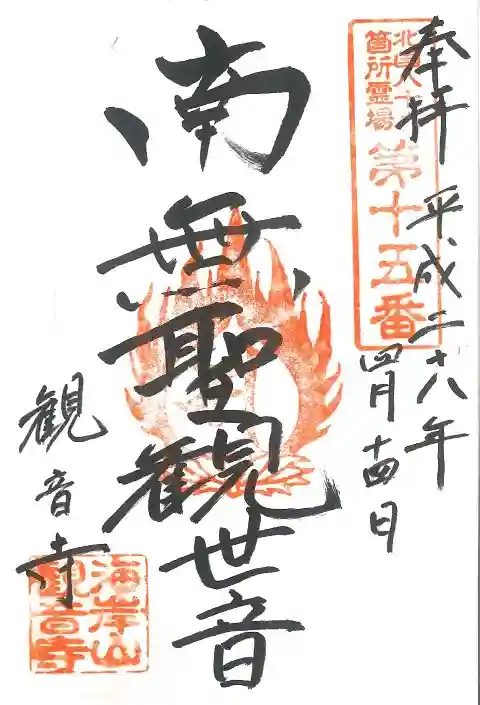 奉拝 平成二十八年
四月十四日
北国八十
箇所霊場
第十五番
南無聖観世音
観音寺
海岸山
観音寺